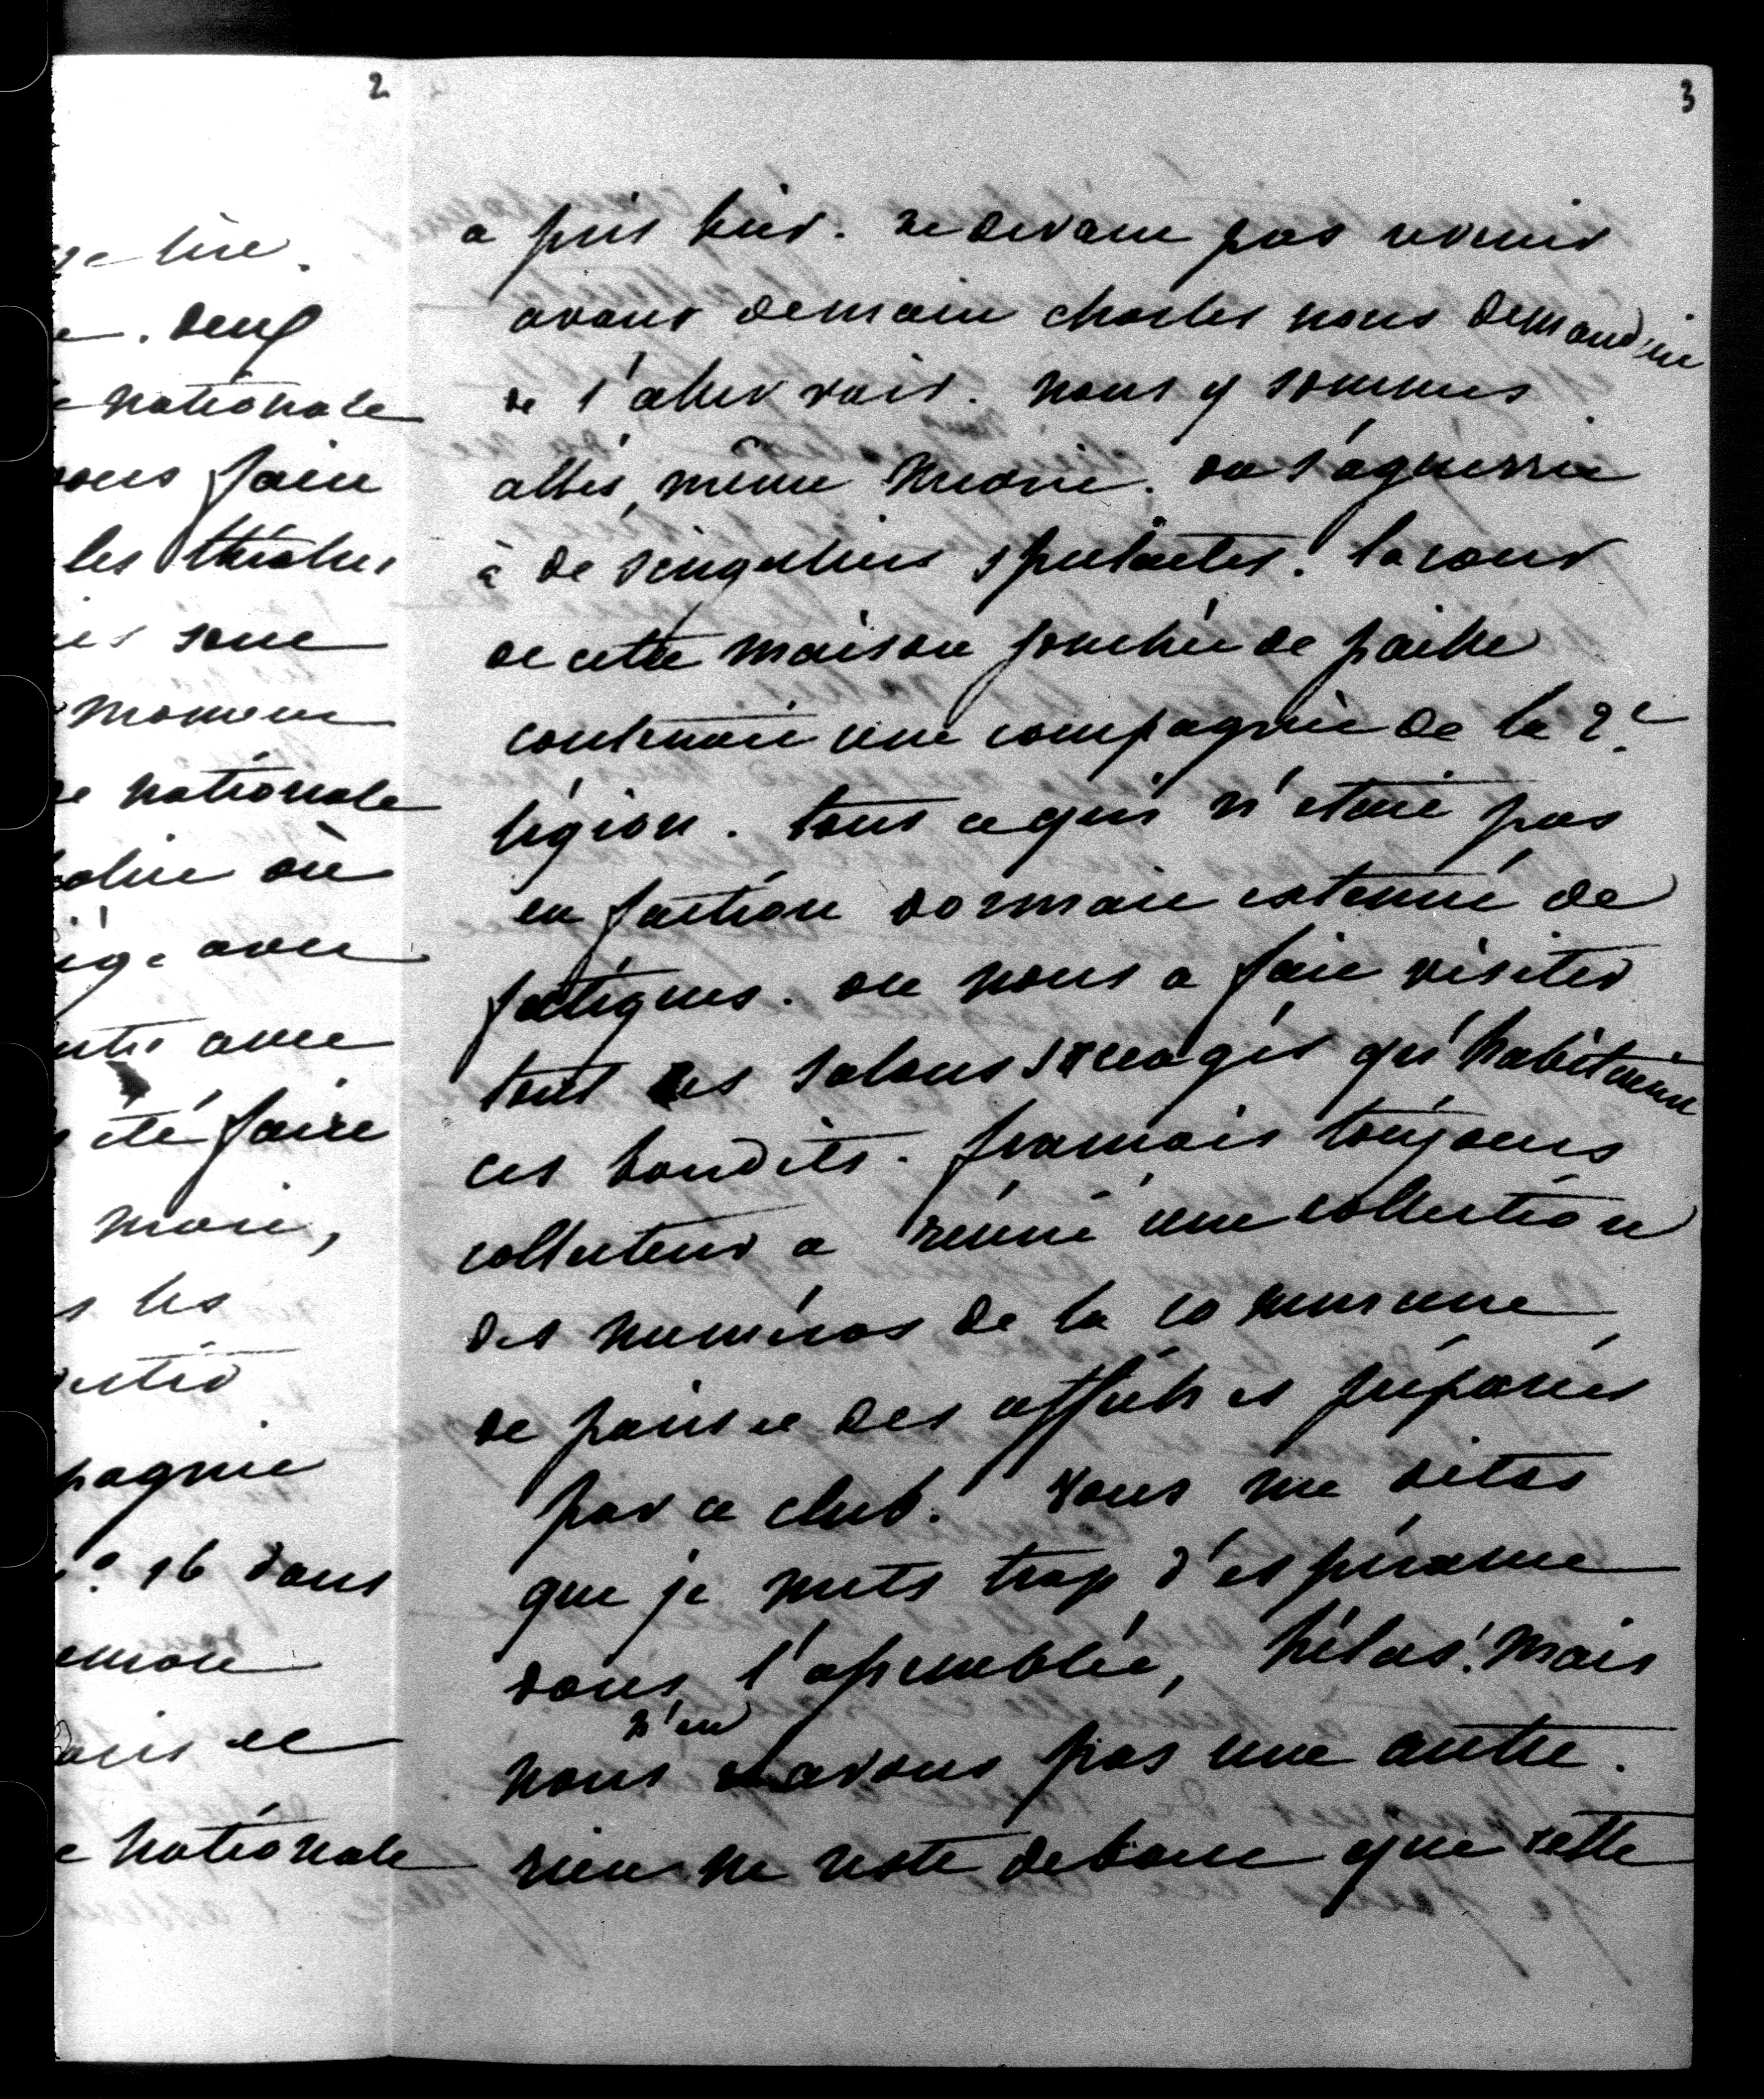 2
ge lire.
e. deux
e nationale
vous faire
les théatres
ies sont
moment
de nationale
où
iége avec
avec
été faire
mari,
s les
pagnie
n.° 16 dans
Paris et
e nationale
3
a pris hier. ne devant pas revenir
avant demain charles nous demandait
de l'aller voir. nous y sommes
allés, même medorie. on s'aguerrit
à de singuliers spectacles. la cour
de cette maison jonchée de paille
contenait une compagnie de la 2.e
légion. tout ce qui n'etait pas
en faction dormait extenué de
fatigues. on nous a fait visiter
tout les salons saccagés qu'habitaient
ces bandits. framais toujours
collecteur a réuni une collection
des numéros de la commune
de paris et des affiches préparées
par ce club. Vous me dites
que je mets trop d'espérance
dans l'assemblée, hélas! mais
nous n'en avons pas une autre.
rien ne reste debout que cette